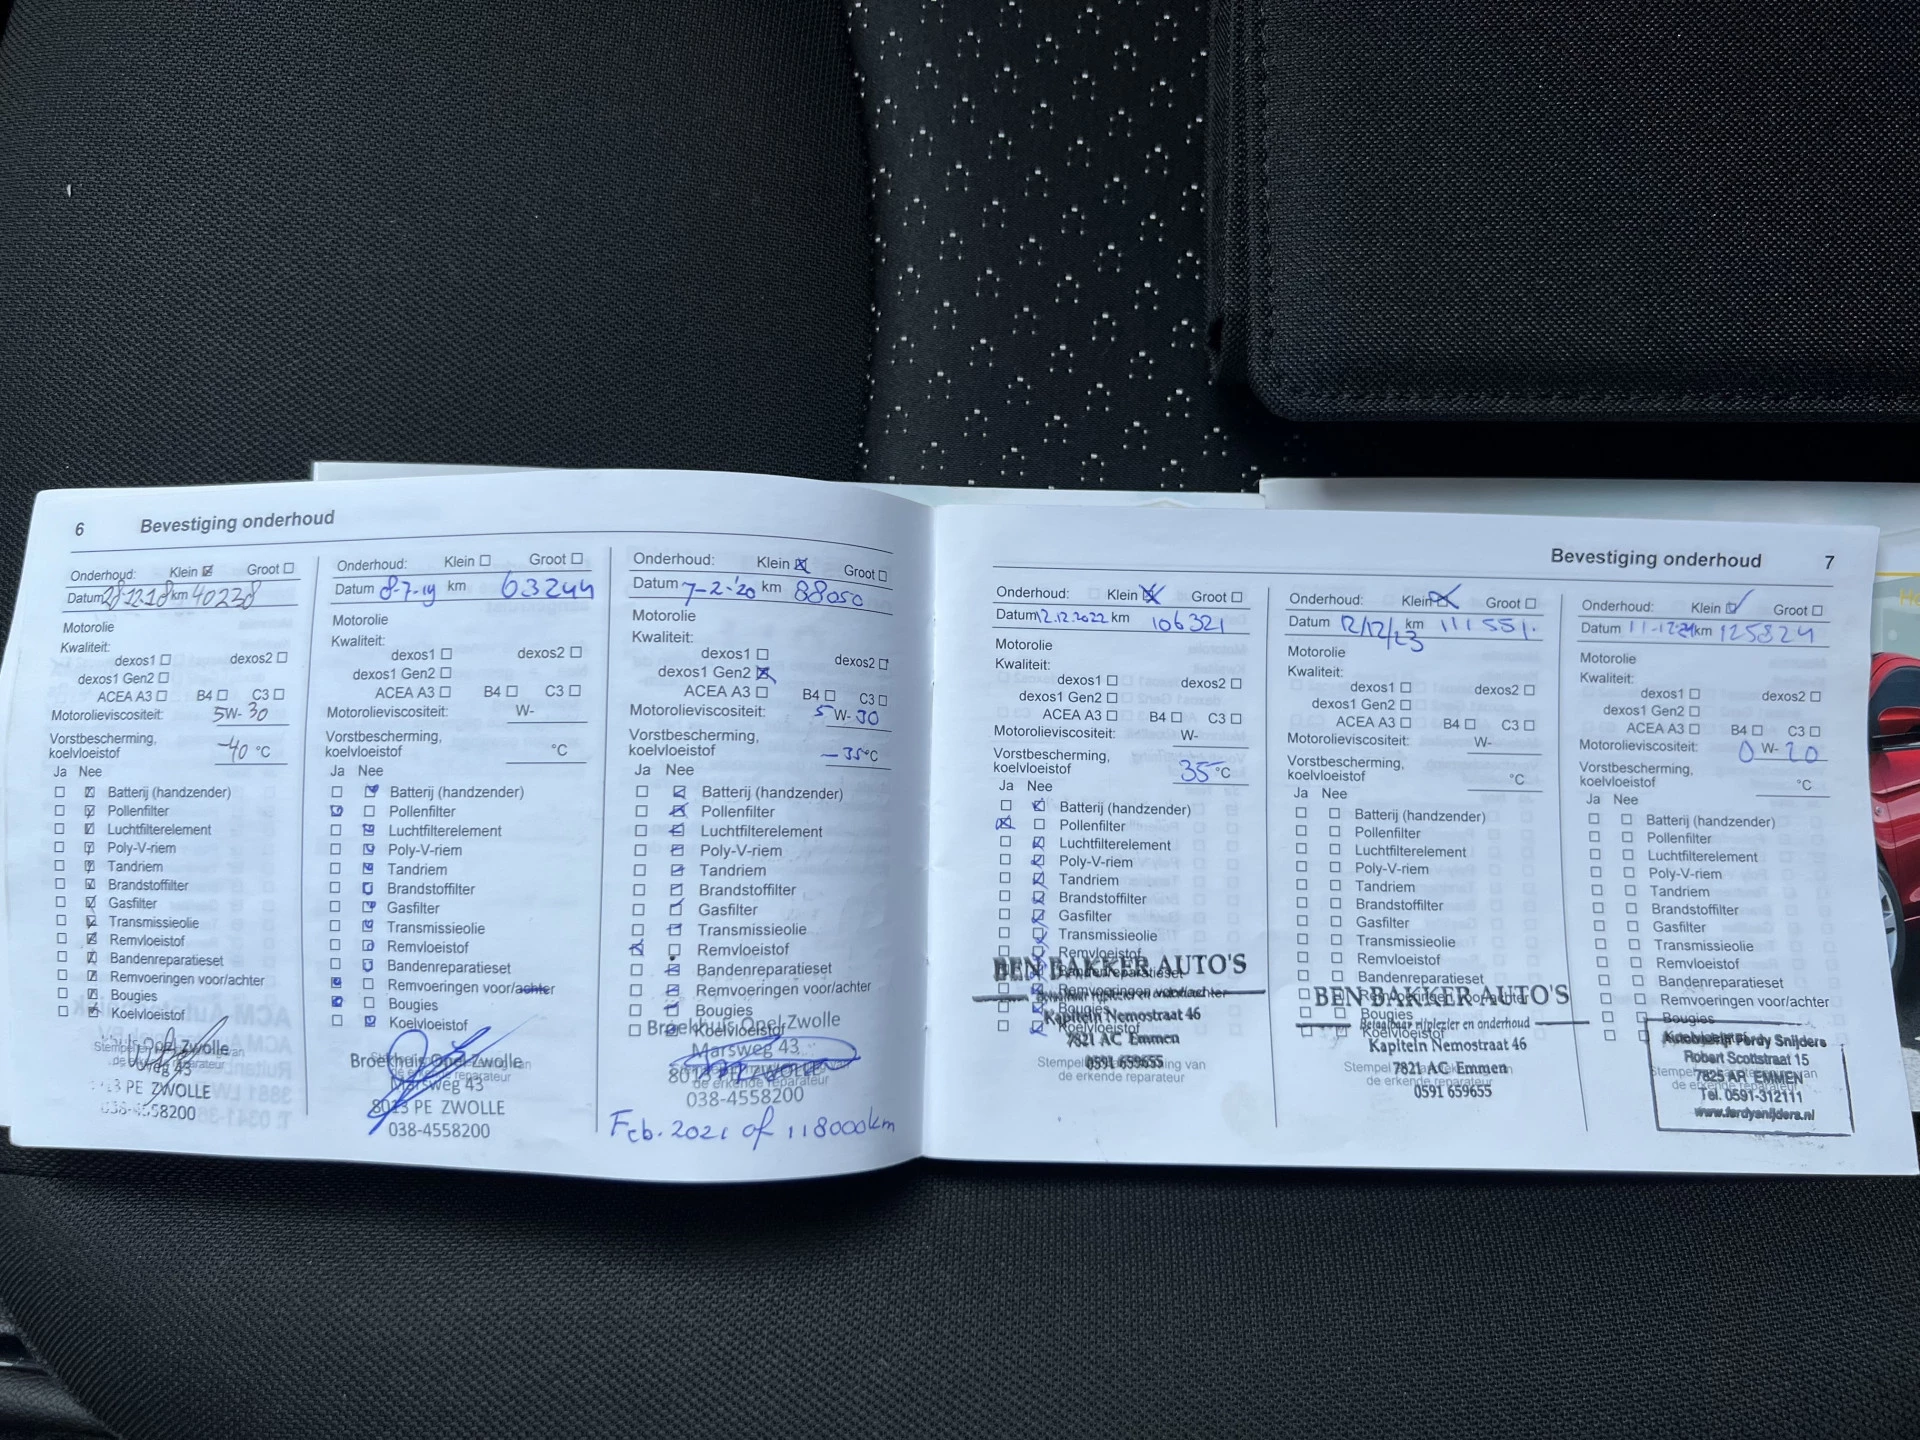 6 Bevestiging onderhoud
Onderhoud: Klein ☒ Groot ☐
Datum 28.12.18 km 40238
Motorolie
Kwaliteit:
dexos1 ☐ dexos2 ☐
dexos1 Gen2 ☐
ACEA A3 ☐ B4 ☐ C3 ☐
Motorolieviscositeit: 5W-30
Vorstbescherming,
koelvloeistof -40 °C
Ja Nee
☐ ☒ Batterij (handzender)
☐ ☒ Pollenfilter
☐ ☒ Luchtfilterelement
☐ ☒ Poly-V-riem
☐ ☒ Tandriem
☐ ☒ Brandstoffilter
☐ ☒ Gasfilter
☐ ☒ Transmissieolie
☐ ☒ Remvloeistof
☐ ☒ Bandenreparatieset
☐ ☒ Remvoeringen voor/achter
☐ ☒ Bougies
☐ ☒ Koelvloeistof
Opel Zwolle
de erkende reparateur
PE ZWOLLE
038-4558200
Onderhoud: Klein ☐ Groot ☐
Datum 8-7-19 km 63244
Motorolie
Kwaliteit:
dexos1 ☐ dexos2 ☐
dexos1 Gen2 ☐
ACEA A3 ☐ B4 ☐ C3 ☐
Motorolieviscositeit: W-
Vorstbescherming,
koelvloeistof °C
Ja Nee
☐ ☒ Batterij (handzender)
☒ ☐ Pollenfilter
☐ ☒ Luchtfilterelement
☐ ☒ Poly-V-riem
☐ ☒ Tandriem
☐ ☒ Brandstoffilter
☐ ☒ Gasfilter
☐ ☒ Transmissieolie
☐ ☒ Remvloeistof
☐ ☒ Bandenreparatieset
☒ ☐ Remvoeringen voor/achter
☒ ☐ Bougies
☐ ☒ Koelvloeistof
Broekhuis Opel Zwolle
Marsweg 43
8013 PE ZWOLLE
038-4558200
Onderhoud: Klein ☒ Groot ☐
Datum 7-2-'20 km 88050
Motorolie
Kwaliteit:
dexos1 ☐ dexos2 ☐
dexos1 Gen2 ☒
ACEA A3 ☐ B4 ☐ C3 ☐
Motorolieviscositeit: 5W-30
Vorstbescherming,
koelvloeistof -35 °C
Ja Nee
☐ ☒ Batterij (handzender)
☐ ☒ Pollenfilter
☐ ☒ Luchtfilterelement
☐ ☒ Poly-V-riem
☐ ☒ Tandriem
☐ ☒ Brandstoffilter
☐ ☒ Gasfilter
☐ ☒ Transmissieolie
☒ ☐ Remvloeistof
☐ ☒ Bandenreparatieset
☐ ☒ Remvoeringen voor/achter
☐ ☒ Bougies
☐ ☒ Koelvloeistof
Broekhuis Opel Zwolle
Marsweg 43
8013 PE ZWOLLE
de erkende reparateur
038-4558200
Feb. 2021 of 118000km
Bevestiging onderhoud 7
Onderhoud: ☐ Klein ☒ Groot ☐
Datum 12.12.2022 km 106321
Motorolie
Kwaliteit:
dexos1 ☐ dexos2 ☐
dexos1 Gen2 ☐
ACEA A3 ☐ B4 ☐ C3 ☐
Motorolieviscositeit: W-
Vorstbescherming,
koelvloeistof 35 °C
Ja Nee
☐ ☒ Batterij (handzender)
☒ ☐ Pollenfilter
☐ ☒ Luchtfilterelement
☐ ☒ Poly-V-riem
☐ ☒ Tandriem
☐ ☒ Brandstoffilter
☐ ☒ Gasfilter
☐ ☒ Transmissieolie
☐ ☒ Remvloeistof
BEN BAKKER AUTO'S
☐ ☒ Bandenreparatieset
☐ ☒ Remvoeringen voor/achter
☐ ☒ Bougies
Kapitein Nemostraat 46
☐ ☒ Koelvloeistof
7821 AC Emmen
0591 659655
de erkende reparateur
Onderhoud: Klein ☒ Groot ☐
Datum 12/12/23 km 111551.
Motorolie
Kwaliteit:
dexos1 ☐ dexos2 ☐
dexos1 Gen2 ☐
ACEA A3 ☐ B4 ☐ C3 ☐
Motorolieviscositeit: W-
Vorstbescherming,
koelvloeistof °C
Ja Nee
☐ ☐ Batterij (handzender)
☐ ☐ Pollenfilter
☐ ☐ Luchtfilterelement
☐ ☐ Poly-V-riem
☐ ☐ Tandriem
☐ ☐ Brandstoffilter
☐ ☐ Gasfilter
☐ ☐ Transmissieolie
☐ ☐ Remvloeistof
☐ ☐ Bandenreparatieset
☐ ☐ Remvoeringen voor/achter
BEN BAKKER AUTO'S
☐ ☐ Bougies
Betaalbaar rijplezier en onderhoud
☐ ☐ Koelvloeistof
Kapitein Nemostraat 46
7821 AC Emmen
de erkende reparateur
0591 659655
Onderhoud: Klein ☑ Groot ☐
Datum 11-12-24 km 125824
Motorolie
Kwaliteit:
dexos1 ☐ dexos2 ☐
dexos1 Gen2 ☐
ACEA A3 ☐ B4 ☐ C3 ☐
Motorolieviscositeit: 0W-20
Vorstbescherming,
koelvloeistof °C
Ja Nee
☐ ☐ Batterij (handzender)
☐ ☐ Pollenfilter
☐ ☐ Luchtfilterelement
☐ ☐ Poly-V-riem
☐ ☐ Tandriem
☐ ☐ Brandstoffilter
☐ ☐ Gasfilter
☐ ☐ Transmissieolie
☐ ☐ Remvloeistof
☐ ☐ Bandenreparatieset
☐ ☐ Remvoeringen voor/achter
☐ ☐ Bougies
Ferdy Snijders
Robert Scottstraat 15
7825 AR EMMEN
Tel. 0591-312111
www.ferdysnijders.nl